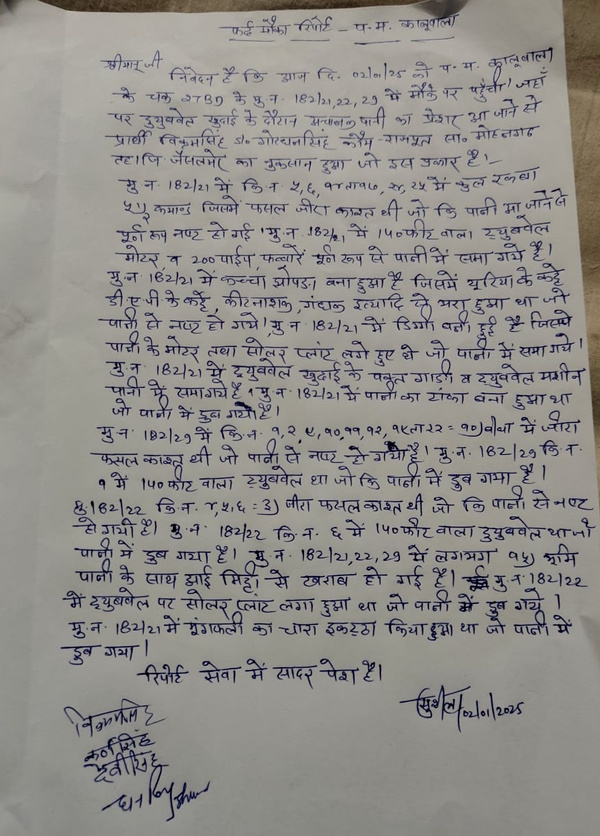 फर्द मौका रिपोर्ट - प.म. कालूवाला
श्रीमान् जी
निवेदन है कि आज दि. 02/01/25 को प.म. कालूवाला
के चक 2TBD के मु.न. 182/21,22,29 में मौके पर पहुँची। जहाँ
पर ट्युबवेल खुदाई के दौरान अचानक पानी का प्रेशर आ जाने से
प्रार्थी विक्रमसिंह s/o गोरधनसिंह कौम-राजपूत सा. मोहनगढ
तहसील जैसलमेर का नुकसान हुआ जो इस प्रकार है।-
मु.न. 182/21 में कि.न ५,६, १५, २५ में कुल रकबा
कमाण्ड जिसमें फसल जीरा काश्त थी जो कि पानी आ जाने से
पूर्ण रूप नष्ट हो गई। मु.न. 182/21 में १५० फीट वाला ट्युबवेल
मोटर, व २०० पाईप, फव्वारें पूर्ण रूप से पानी में समा गये है।
मु.न. 182/21 में कच्चा झोपड़ा बना हुआ है जिसमें यूरिया के कट्टे
डी.ए.पी के कट्टे, कीटनाशक, गंधक इत्यादि से भरा हुआ था जो
पानी से नष्ट हो गये। मु.न 182/21 में डिग्गी बनी हुई है जिसमें
पानी के मोटर तथा सोलर प्लांट लगे हुए थे जो पानी में समा गये।
मु.न. 182/21 में ट्युबवेल खुदाई के वक्त गाडी व ट्युबवेल मशीन
पानी में समा गये है। मु.न. 182/21 में पानी का टांका बना हुआ था
जो पानी में डुब गया है।
मु.न. 182/29 में कि.न. १,२,९,१०,११,१२, १९ता२२ = १०) बीघा में जीरा
फसल काश्त थी जो पानी से नष्ट हो गयी है। मु.न. 182/29 कि.न.
१ में १५० फीट वाला ट्युबवेल था जो कि पानी में डुब गया है।
मु. 182/22 कि.न. ४,५,६ = 3) जीरा फसल काश्त थी जो कि पानी से नष्ट
हो गयी है। मु.न. 182/22 कि.न. ६ में १५० फीट वाला ट्युबवेल था जो
पानी में डुब गया है। मु.न. 182/21,22,29 में लगभग १५) भूमि
पानी के साथ आई मिट्टी से खराब हो गई है। मु.न. 182/22
में ट्युबवेल पर सोलर प्लांट लगा हुआ था जो पानी में डुब गये।
मु.न. 182/21 में मूंगफली का चारा इकट्ठा किया हुआ था जो पानी में
डुब गया।
रिपोर्ट सेवा में सादर पेश है।
सुशील 02/01/2025
विक्रमसिंह
कर्णसिंह
देवीसिंह